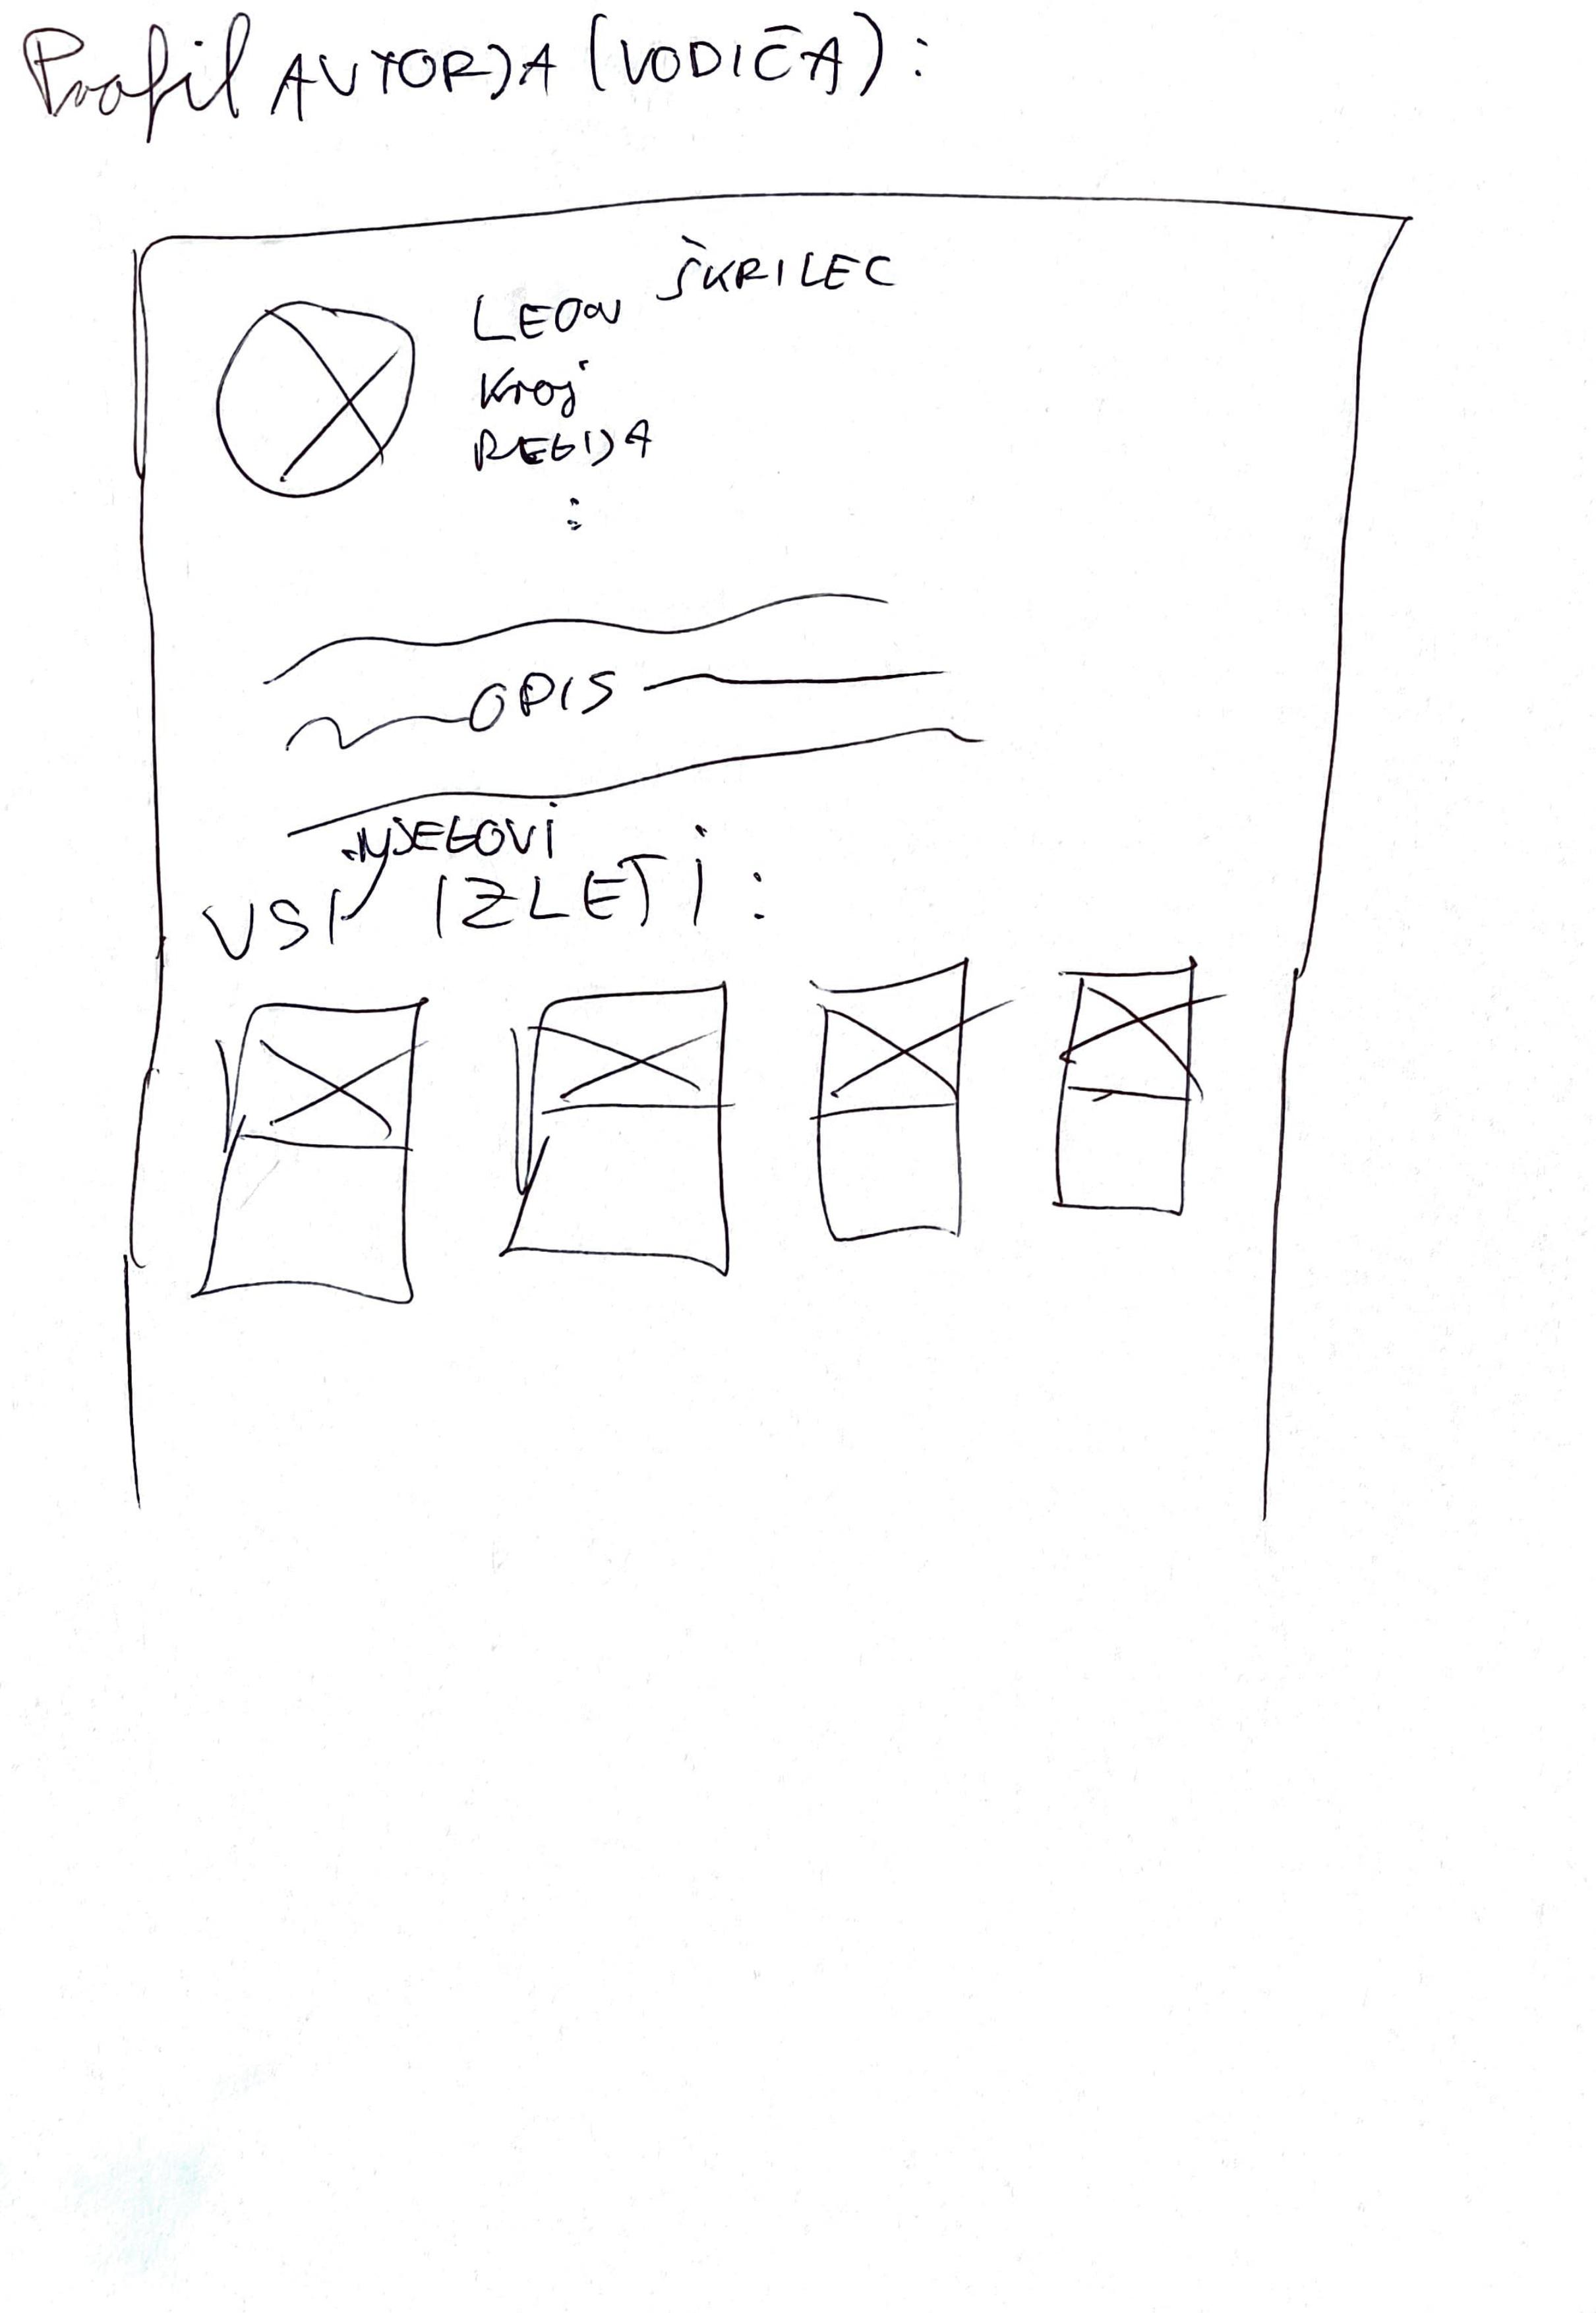 Profil AVTORJA (VODIČA):
LEON ŠKRILEC
Kraj
REGIJA
:
OPIS
NJEGOVI
VSI IZLETI: